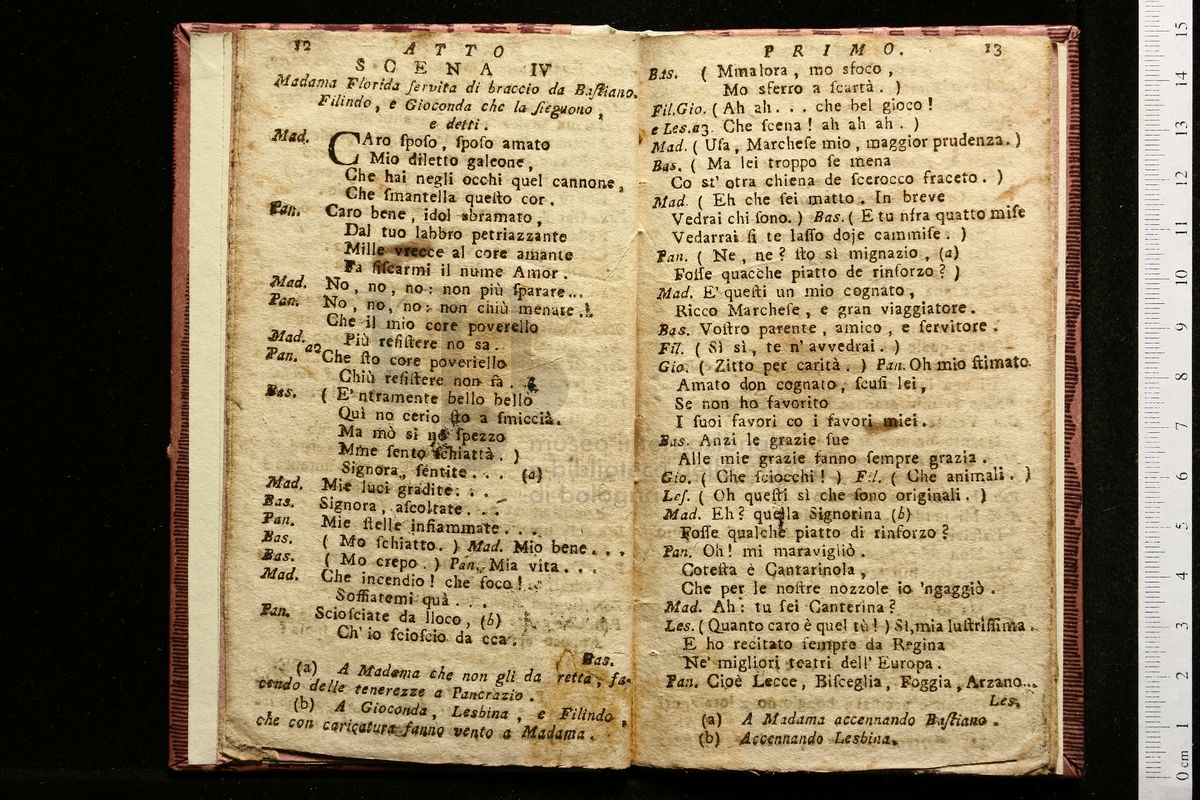 12
ATTO
SCENA IV
Madama Florida ſervita di braccio da Baſtiano.
Filindo, e Gioconda che la ſieguono,
e detti.
Mad. CAro ſpoſo, ſpoſo amato
Mio diletto galeone,
Che hai negli occhi quel cannone,
Che ſmantella queſto cor.
Pan. Caro bene, idol abramato,
Dal tuo labbro petriazzante
Mille vrecce al core amante
Fa fiſcarmi il nume Amor.
Mad. No, no, no: non più ſparare...
Pan. No, no, no: non chiù menare..
Che il mio core poverello
Mad. Più reſiſtere no sa.
Pan. a2 Che ſto core poveriello
Chiù reſiſtere non ſà.
Bas. ( E' ntramente bello bello
Qui no cerio ſto a ſmiccià.
Ma mò sì ne ſpezzo
Mme ſento ſchiattà. )
Signora, ſentite... (a)
Mad. Mie luci gradite...
Bas. Signora, aſcoltate...
Pan. Mie ſtelle infiammate...
Bas. ( Mo ſchiatto. ) Mad. Mio bene...
Bas. ( Mo crepo. ) Pan. Mia vita...
Mad. Che incendio! che foco!..
Soffiatemi quà...
Pan. Scioſciate da lloco, (b)
Ch' io ſcioſcio da cca.
Bas.
(a) A Madama che non gli da retta, fa-
cendo delle tenerezze a Pancrazio.
(b) A Gioconda, Lesbina, e Filindo,
che con caricatura fanno vento a Madama.
PRIMO.
13
Bas. ( Mmalora, mo sfoco,
Mo sferro a ſcartà. )
Fil.Gio. ( Ah ah... che bel gioco!
e Les.a3. Che ſcena! ah ah ah. )
Mad. ( Uſa, Marcheſe mio, maggior prudenza. )
Bas. ( Ma lei troppo ſe mena
Co st' otra chiena de ſcerocco fraceto. )
Mad. ( Eh che ſei matto. In breve
Vedrai chi ſono. ) Bas. ( E tu nfra quatto miſe
Vedarrai ſi te laſſo doje cammiſe. )
Pan. ( Ne, ne? ſto sì mignazio, (a)
Foſſe quacche piatto de rinforzo? )
Mad. E' queſti un mio cognato,
Ricco Marcheſe, e gran viaggiatore.
Bas. Voſtro parente, amico, e ſervitore.
Fil. ( Sì sì, te n' avvedrai. )
Gio. ( Zitto per carità. ) Pan. Oh mio ſtimato.
Amato don cognato, ſcuſi lei,
Se non ho favorito
I ſuoi favori co i favori miei.
Bas. Anzi le grazie ſue
Alle mie grazie fanno ſempre grazia.
Gio. ( Che ſciocchi! ) Fil. ( Che animali. )
Leſ. ( Oh queſti sì che ſono originali. )
Mad. Eh? quella Signorina (b)
Foſſe qualche piatto di rinforzo?
Pan. Oh! mi maravigliò.
Coteſta è Cantarinola,
Che per le noſtre nozzole io 'ngaggiò.
Mad. Ah: tu ſei Canterina?
Les. ( Quanto caro è quel tù! ) Sì, mia luſtriſſima.
E ho recitato ſempre da Regina
Ne' migliori teatri dell' Europa.
Pan. Cioè Lecce, Biſceglia, Foggia, Arzano...
Les.
(a) A Madama accennando Baſtiano.
(b) Accennando Lesbina.
museo
biblioteca
di bologna
0 cm 1 2 3 4 5 6 7 8 9 10 11 12 13 14 15